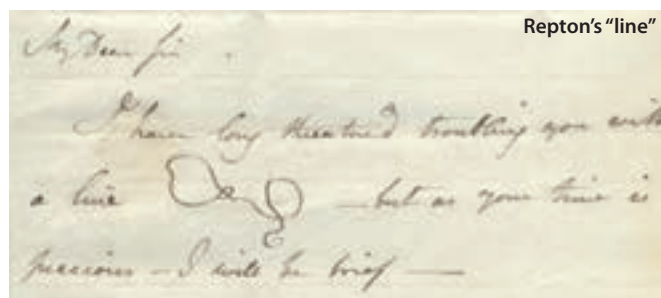 Repton's “line”
My Dear Sir
I have long threatened troubling you with
a line — but as your time is
precious – I will be brief —